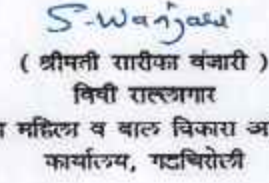 S-Wanjari
( श्रीमती सारीका वंजारी )
विधी सल्लागार
महिला व बाल विकास अ
कार्यालय, गडचिरोली